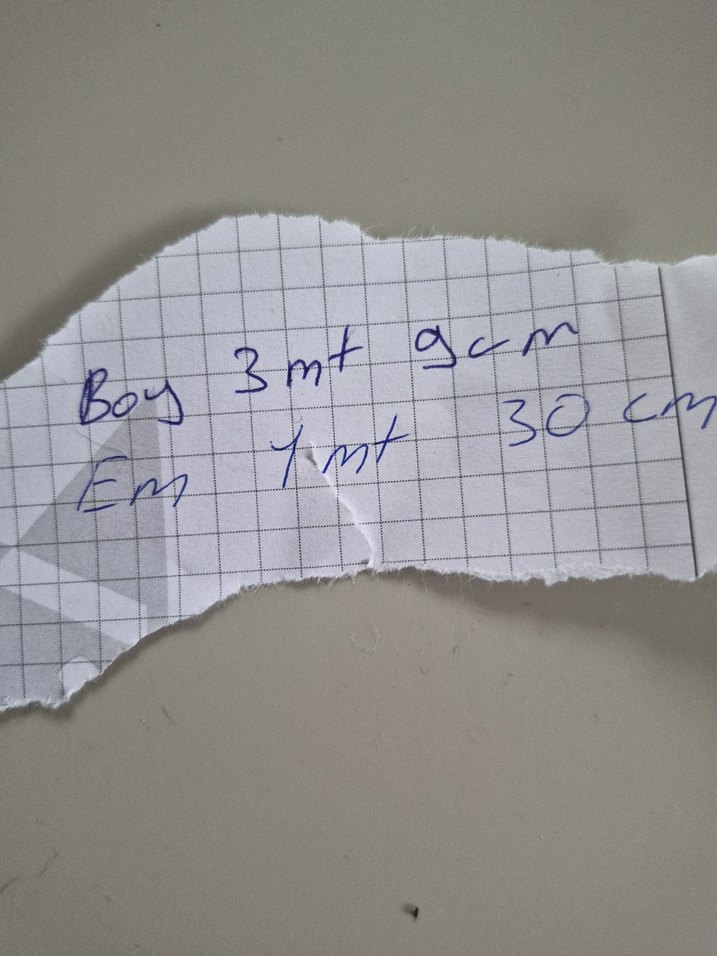 Boy 3mt 9cm
Em 1mt 30 cm